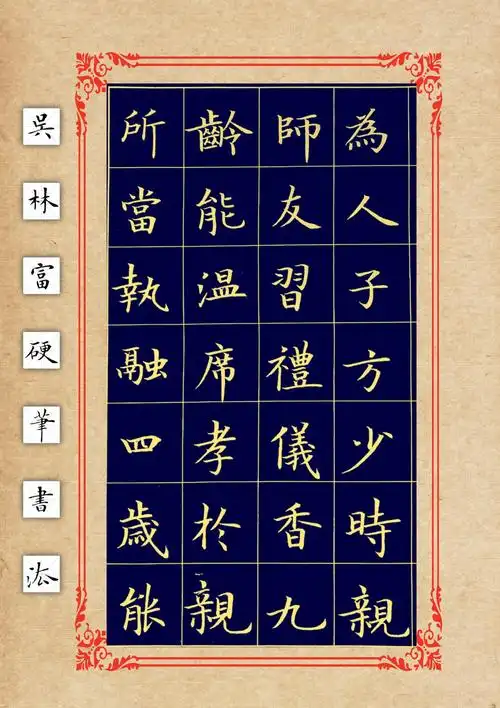 為人子方少時親
師友習禮儀香九
齡能溫席孝於親
所當執融四歲能
吳林富硬筆書法